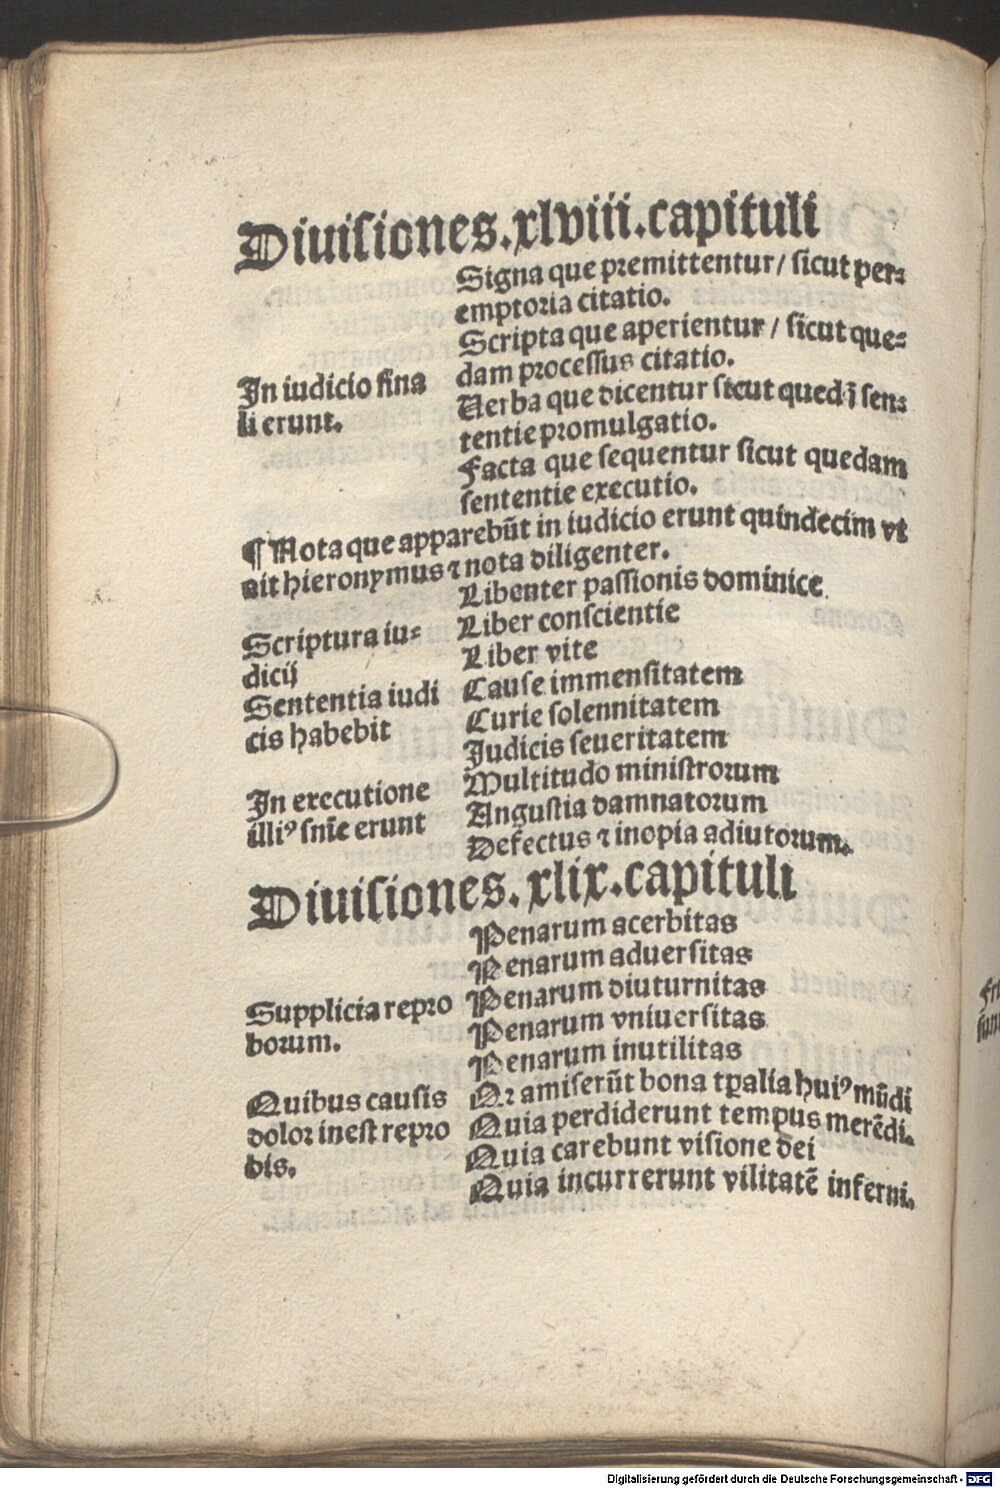 Diuisiones.xlviii.capituli
Signa que premittentur / sicut per⸗
emptoria citatio.
Scripta que aperientur / sicut que⸗
dam processus citatio.
In iudicio fina
li erunt.
Uerba que dicentur sicut quedā sen⸗
tentie promulgatio.
Facta que sequentur sicut quedam
sententie executio.
¶ Nota que apparebūt in iudicio erunt quindecim vt
ait hieronymus ⁊ nota diligenter.
Scriptura iu⸗
dicij
Libenter passionis dominice
Liber conscientie
Liber vite
Sententia iudi
cis habebit
Cause immensitatem
Curie solennitatem
Judicis seueritatem
In executione
illiꝰ snīe erunt
Multitudo ministrorum
Angustia damnatorum
Defectus ⁊ inopia adiutorum.
Diuisiones.xlix.capituli
Supplicia repro
borum.
Penarum acerbitas
Penarum aduersitas
Penarum diuturnitas
Penarum vniuersitas
Penarum inutilitas
Quibus causis
dolor inest repro
bis.
Qr amiserūt bona tꝑalia huiꝰ mūdi
Quia perdiderunt tempus merēdi.
Quia carebunt visione dei
Quia incurrerunt vilitatē inferni.
Digitalisierung gefördert durch die Deutsche Forschungsgemeinschaft - DFG